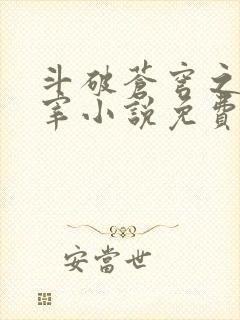 斗破蒼穹之
宰小說免費
安當世